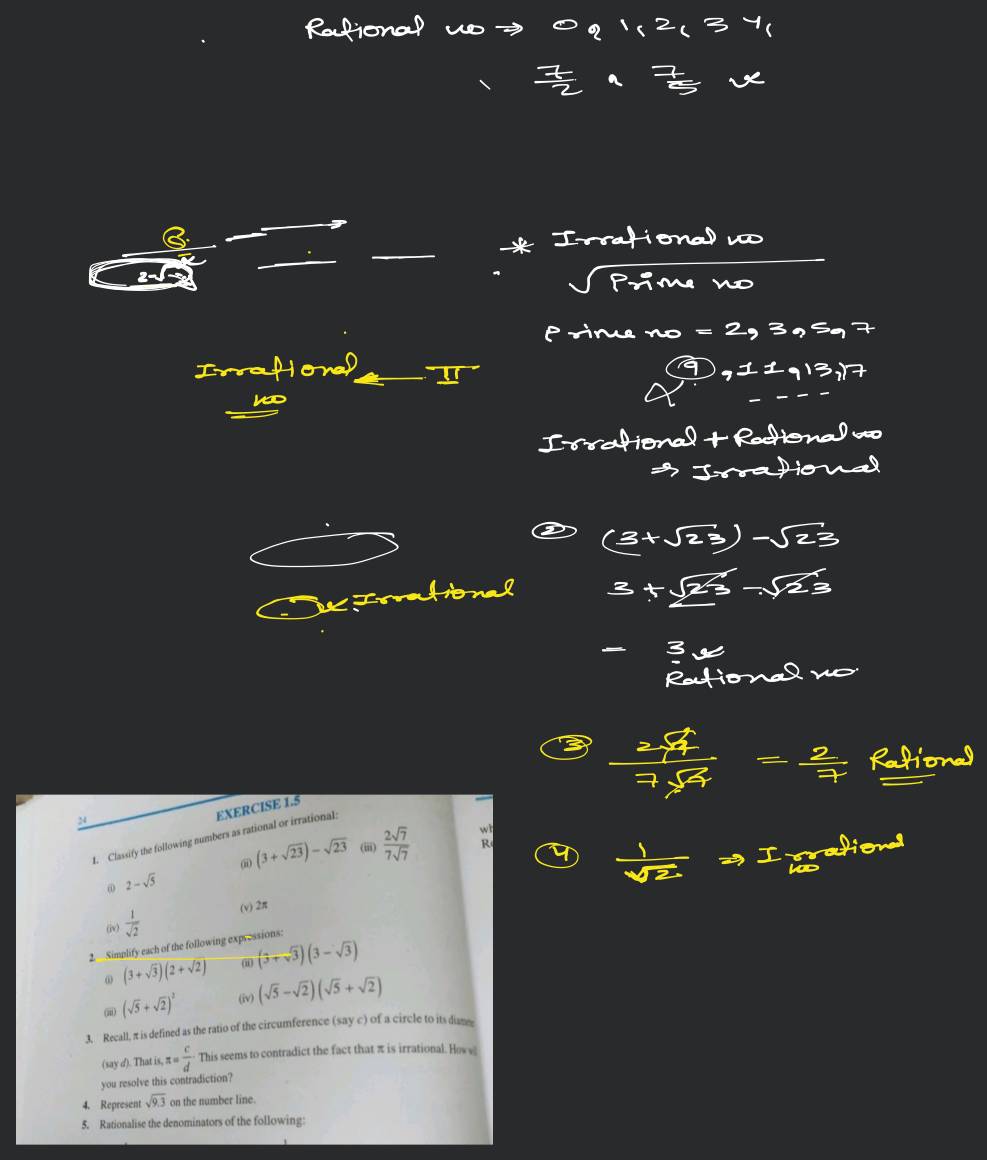 Rational no → 0, 1, 2, 3 4,
7/2, 7/5
B.
2-√
* Irrational no
√Prime no
Prime no = 2, 3, 5, 7
9, 11, 13, 17
- - - -
Irrational ← π
no
Irrational + Rational no
⇒ Irrational
② (3+√23) -√23
3 + √23 - √23
= 3
Rational no.
Irrational
③ 2√7/7√7 = 2/7 Rational
④ 1/√2 ⇒ Irrational
no
24
EXERCISE 1.5
1. Classify the following numbers as rational or irrational:
(i) 2-√5 (ii) (3+√23)-√23 (iii) 2√7/7√7
(iv) 1/√2 (v) 2π
2. Simplify each of the following expressions:
(i) (3+√3)(2+√2) (ii) (3+√3)(3-√3)
(iii) (√5+√2)² (iv) (√5-√2)(√5+√2)
3. Recall, π is defined as the ratio of the circumference (say c) of a circle to its diame
(say d). That is, π = c/d. This seems to contradict the fact that π is irrational. How wi
you resolve this contradiction?
4. Represent √9.3 on the number line.
5. Rationalise the denominators of the following: